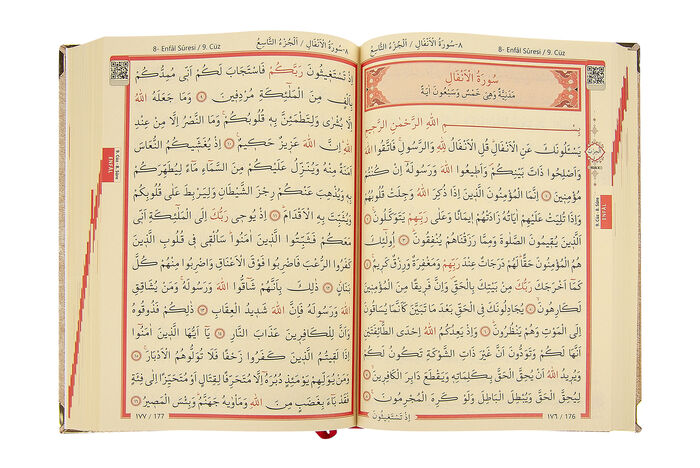 ٨-سُورَةُ الْاَنْفَالِ / اَلْجُزْءُ التَّاسِعُ
8- Enfâl Sûresi / 9. Cüz
سُورَةُ الْاَنْفَالِ
مَدَنِيَّةٌ وَهِىَ خَمْسٌ وَسَبْعُونَ اٰيَةً
بِسْمِ اللّٰهِ الرَّحْمٰنِ الرَّحِيمِ
يَسْـَٔلُونَكَ عَنِ الْاَنْفَالِ قُلِ الْاَنْفَالُ لِلّٰهِ وَالرَّسُولِ فَاتَّقُوا اللّٰهَ
وَاَصْلِحُوا ذَاتَ بَيْنِكُمْ وَاَطِيعُوا اللّٰهَ وَرَسُولَهُٓ اِنْ كُنْتُمْ
مُؤْمِنِينَ ١ اِنَّمَا الْمُؤْمِنُونَ الَّذِينَ اِذَا ذُكِرَ اللّٰهُ وَجِلَتْ قُلُوبُهُمْ
وَاِذَا تُلِيَتْ عَلَيْهِمْ اٰيَاتُهُ زَادَتْهُمْ اِيمَانًا وَعَلٰى رَبِّهِمْ يَتَوَكَّلُونَ ٢
اَلَّذِينَ يُقِيمُونَ الصَّلٰوةَ وَمِمَّا رَزَقْنَاهُمْ يُنْفِقُونَ ٣ اُو۬لٰٓئِكَ
هُمُ الْمُؤْمِنُونَ حَقًّا لَهُمْ دَرَجَاتٌ عِنْدَ رَبِّهِمْ وَمَغْفِرَةٌ وَرِزْقٌ كَرِيمٌ ٤
كَمَٓا اَخْرَجَكَ رَبُّكَ مِنْ بَيْتِكَ بِالْحَقِّ وَاِنَّ فَرِيقًا مِنَ الْمُؤْمِنِينَ
لَكَارِهُونَ ٥ يُجَادِلُونَكَ فِى الْحَقِّ بَعْدَ مَا تَبَيَّنَ كَاَنَّمَا يُسَاقُونَ
اِلَى الْمَوْتِ وَهُمْ يَنْظُرُونَ ٦ وَاِذْ يَعِدُكُمُ اللّٰهُ اِحْدَى الطَّٓائِفَتَيْنِ
اَنَّهَا لَكُمْ وَتَوَدُّونَ اَنَّ غَيْرَ ذَاتِ الشَّوْكَةِ تَكُونُ لَكُمْ
وَيُرِيدُ اللّٰهُ اَنْ يُحِقَّ الْحَقَّ بِكَلِمَاتِهِ وَيَقْطَعَ دَابِرَ الْكَافِرِينَ ٧
لِيُحِقَّ الْحَقَّ وَيُبْطِلَ الْبَاطِلَ وَلَوْ كَرِهَ الْمُجْرِمُونَ ٨
اِذْ تَسْتَغِيثُونَ
١٧٦ / 176
9. Cüz - 8. Sûre
ENFÂL
٨-سُورَةُ الْاَنْفَالِ / اَلْجُزْءُ التَّاسِعُ
8- Enfâl Sûresi / 9. Cüz
اِذْ تَسْتَغِيثُونَ رَبَّكُمْ فَاسْتَجَابَ لَكُمْ اَنِّى مُمِدُّكُمْ
بِاَلْفٍ مِنَ الْمَلٰٓئِكَةِ مُرْدِفِينَ ٩ وَمَا جَعَلَهُ اللّٰهُ
اِلَّا بُشْرٰى وَلِتَطْمَئِنَّ بِهِ قُلُوبُكُمْ وَمَا النَّصْرُ اِلَّا مِنْ عِنْدِ
اللّٰهِ اِنَّ اللّٰهَ عَزِيزٌ حَكِيمٌ ١٠ اِذْ يُغَشِّيكُمُ النُّعَاسَ
اَمَنَةً مِنْهُ وَيُنَزِّلُ عَلَيْكُمْ مِنَ السَّمَٓاءِ مَٓاءً لِيُطَهِّرَكُمْ
بِهِ وَيُذْهِبَ عَنْكُمْ رِجْزَ الشَّيْطَانِ وَلِيَرْبِطَ عَلٰى قُلُوبِكُمْ
وَيُثَبِّتَ بِهِ الْاَقْدَامَ ١١ اِذْ يُوحِى رَبُّكَ اِلَى الْمَلٰٓئِكَةِ اَنِّى
مَعَكُمْ فَثَبِّتُوا الَّذِينَ اٰمَنُوا سَاُلْقِى فِى قُلُوبِ الَّذِينَ
كَفَرُوا الرُّعْبَ فَاضْرِبُوا فَوْقَ الْاَعْنَاقِ وَاضْرِبُوا مِنْهُمْ كُلَّ
بَنَانٍ ١٢ ذٰلِكَ بِاَنَّهُمْ شَٓاقُّوا اللّٰهَ وَرَسُولَهُ وَمَنْ يُشَاقِقِ
اللّٰهَ وَرَسُولَهُ فَاِنَّ اللّٰهَ شَدِيدُ الْعِقَابِ ١٣ ذٰلِكُمْ فَذُوقُوهُ
وَاَنَّ لِلْكَافِرِينَ عَذَابَ النَّارِ ١٤ يَٓا اَيُّهَا الَّذِينَ اٰمَنُٓوا
اِذَا لَقِيتُمُ الَّذِينَ كَفَرُوا زَحْفًا فَلَا تُوَلُّوهُمُ الْاَدْبَارَ ١٥
وَمَنْ يُوَلِّهِمْ يَوْمَئِذٍ دُبُرَهُٓ اِلَّا مُتَحَرِّفًا لِقِتَالٍ اَوْ مُتَحَيِّزًا اِلٰى فِئَةٍ
فَقَدْ بَٓاءَ بِغَضَبٍ مِنَ اللّٰهِ وَمَاْوٰيهُ جَهَنَّمُ وَبِئْسَ الْمَصِيرُ ١٦
١٧٧ / 177
9. Cüz - 8. Sûre
ENFÂL